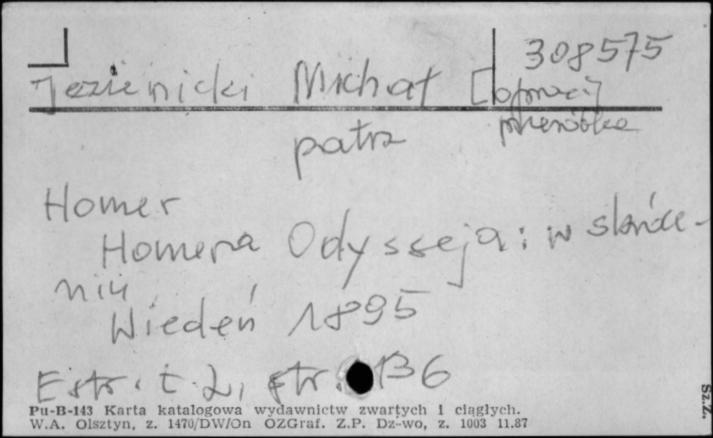 308575
Jezienicki Michał [oprac.]
przeróbka
patrz
Homer
Homera Odysseja: w skróce-
niu
Wiedeń 1895
Estr. t. 2, str. 136
Pu-B-143 Karta katalogowa wydawnictw zwartych i ciągłych.
W.A. Olsztyn, z. 1470/DW/On OZGraf. Z.P. Dz-wo, z. 1003 11.87
Sz.Z.